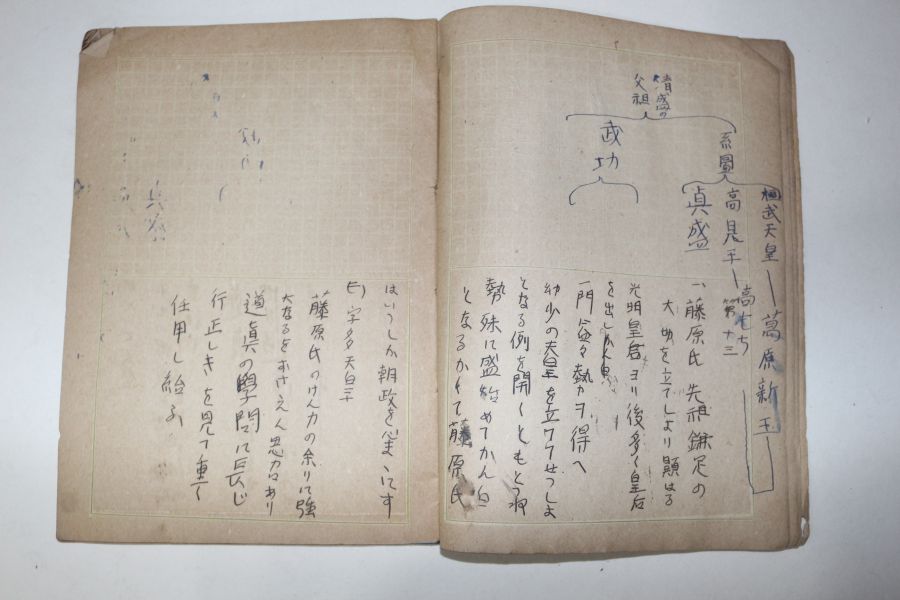 桓武天皇 ― 葛原新王 ―
高見平 ―
第十三
系圖
貞盛
清盛の
父祖
武功
一、藤原氏 先祖鎌足の
大功を立てしより顕はる
光明皇后ヨリ後多く皇后
を出し
一門益々勢力ヲ得へ
幼少の天皇を立ててせつしよ
となる例を開く もとつね
勢殊に盛 始めてかん白
となるかくて藤原氏
はいつしか朝政を心まゝにす
宇多天皇
藤原氏のけん力の余りに強
大なるをおさえん思力あり
道真の學問に長じ
行正しきを見て重く
任用し給ふ